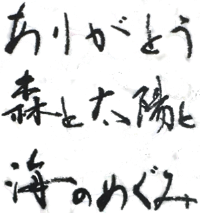 ありがとう
森と太陽と
海のめぐみ